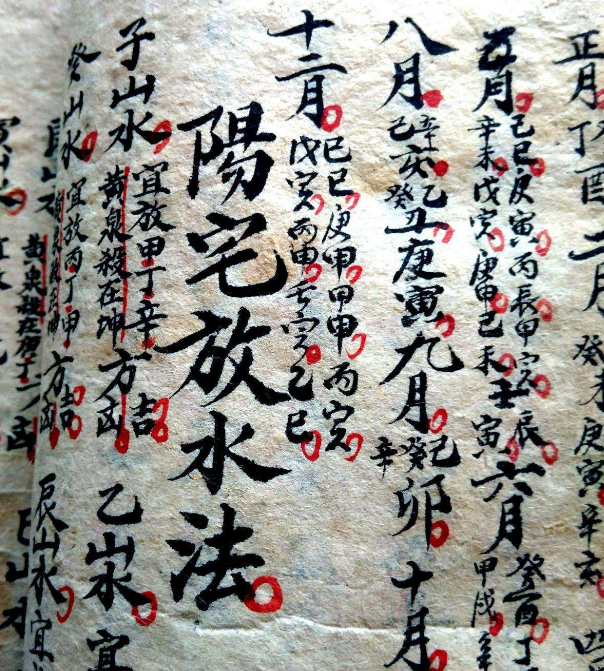 正月
丁酉
二月
癸未
庚寅
辛亥
五月
己巳庚寅丙辰甲寅
辛未戊寅庚申己未壬寅
辰
六月
癸酉丁
甲戌
八月
辛亥
己亥
乙丑
癸丑
庚寅
九月
己卯
癸卯
辛卯
十月
十二月
己巳庚申甲申丙寅
戊寅丙申壬寅乙巳
陽宅放水法
子山水
宜放甲丁辛方吉
黃泉殺在坤方凶
乙山水
宜
癸山水
宜放丙丁申方吉
方凶
辰山水
宜
黃泉殺在
凶